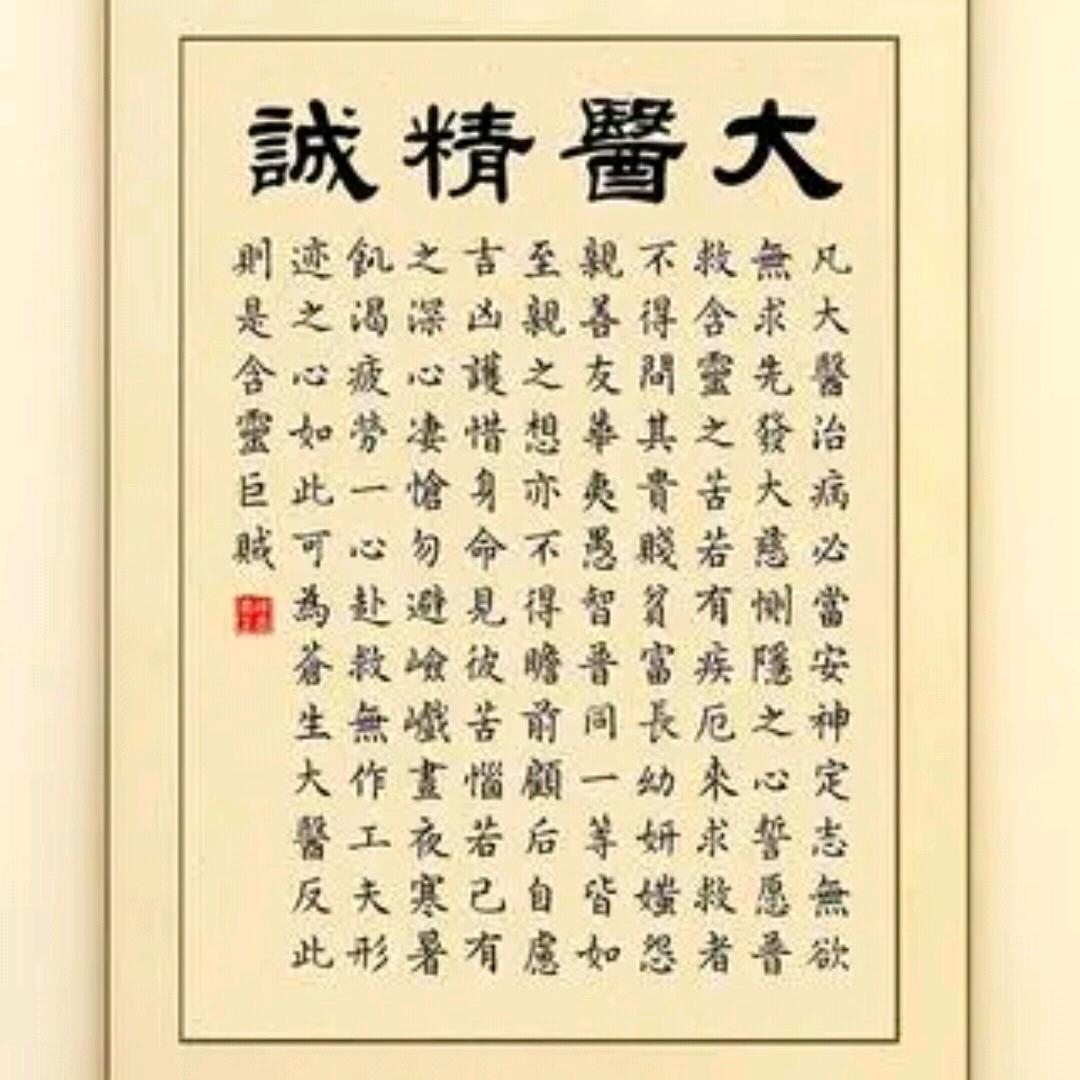 大醫精誠
凡大醫治病必當安神定志無欲
無求先發大慈惻隱之心誓愿普
救含靈之苦若有疾厄來求救者
不得問其貴賤貧富長幼妍媸怨
親善友華夷愚智普同一等皆如
至親之想亦不得瞻前顧后自慮
吉凶護惜身命見彼苦惱若己有
之深心凄愴勿避嶮巇晝夜寒暑
飢渴疲勞一心赴救無作工夫形
迹之心如此可為蒼生大醫反此
則是含靈巨賊